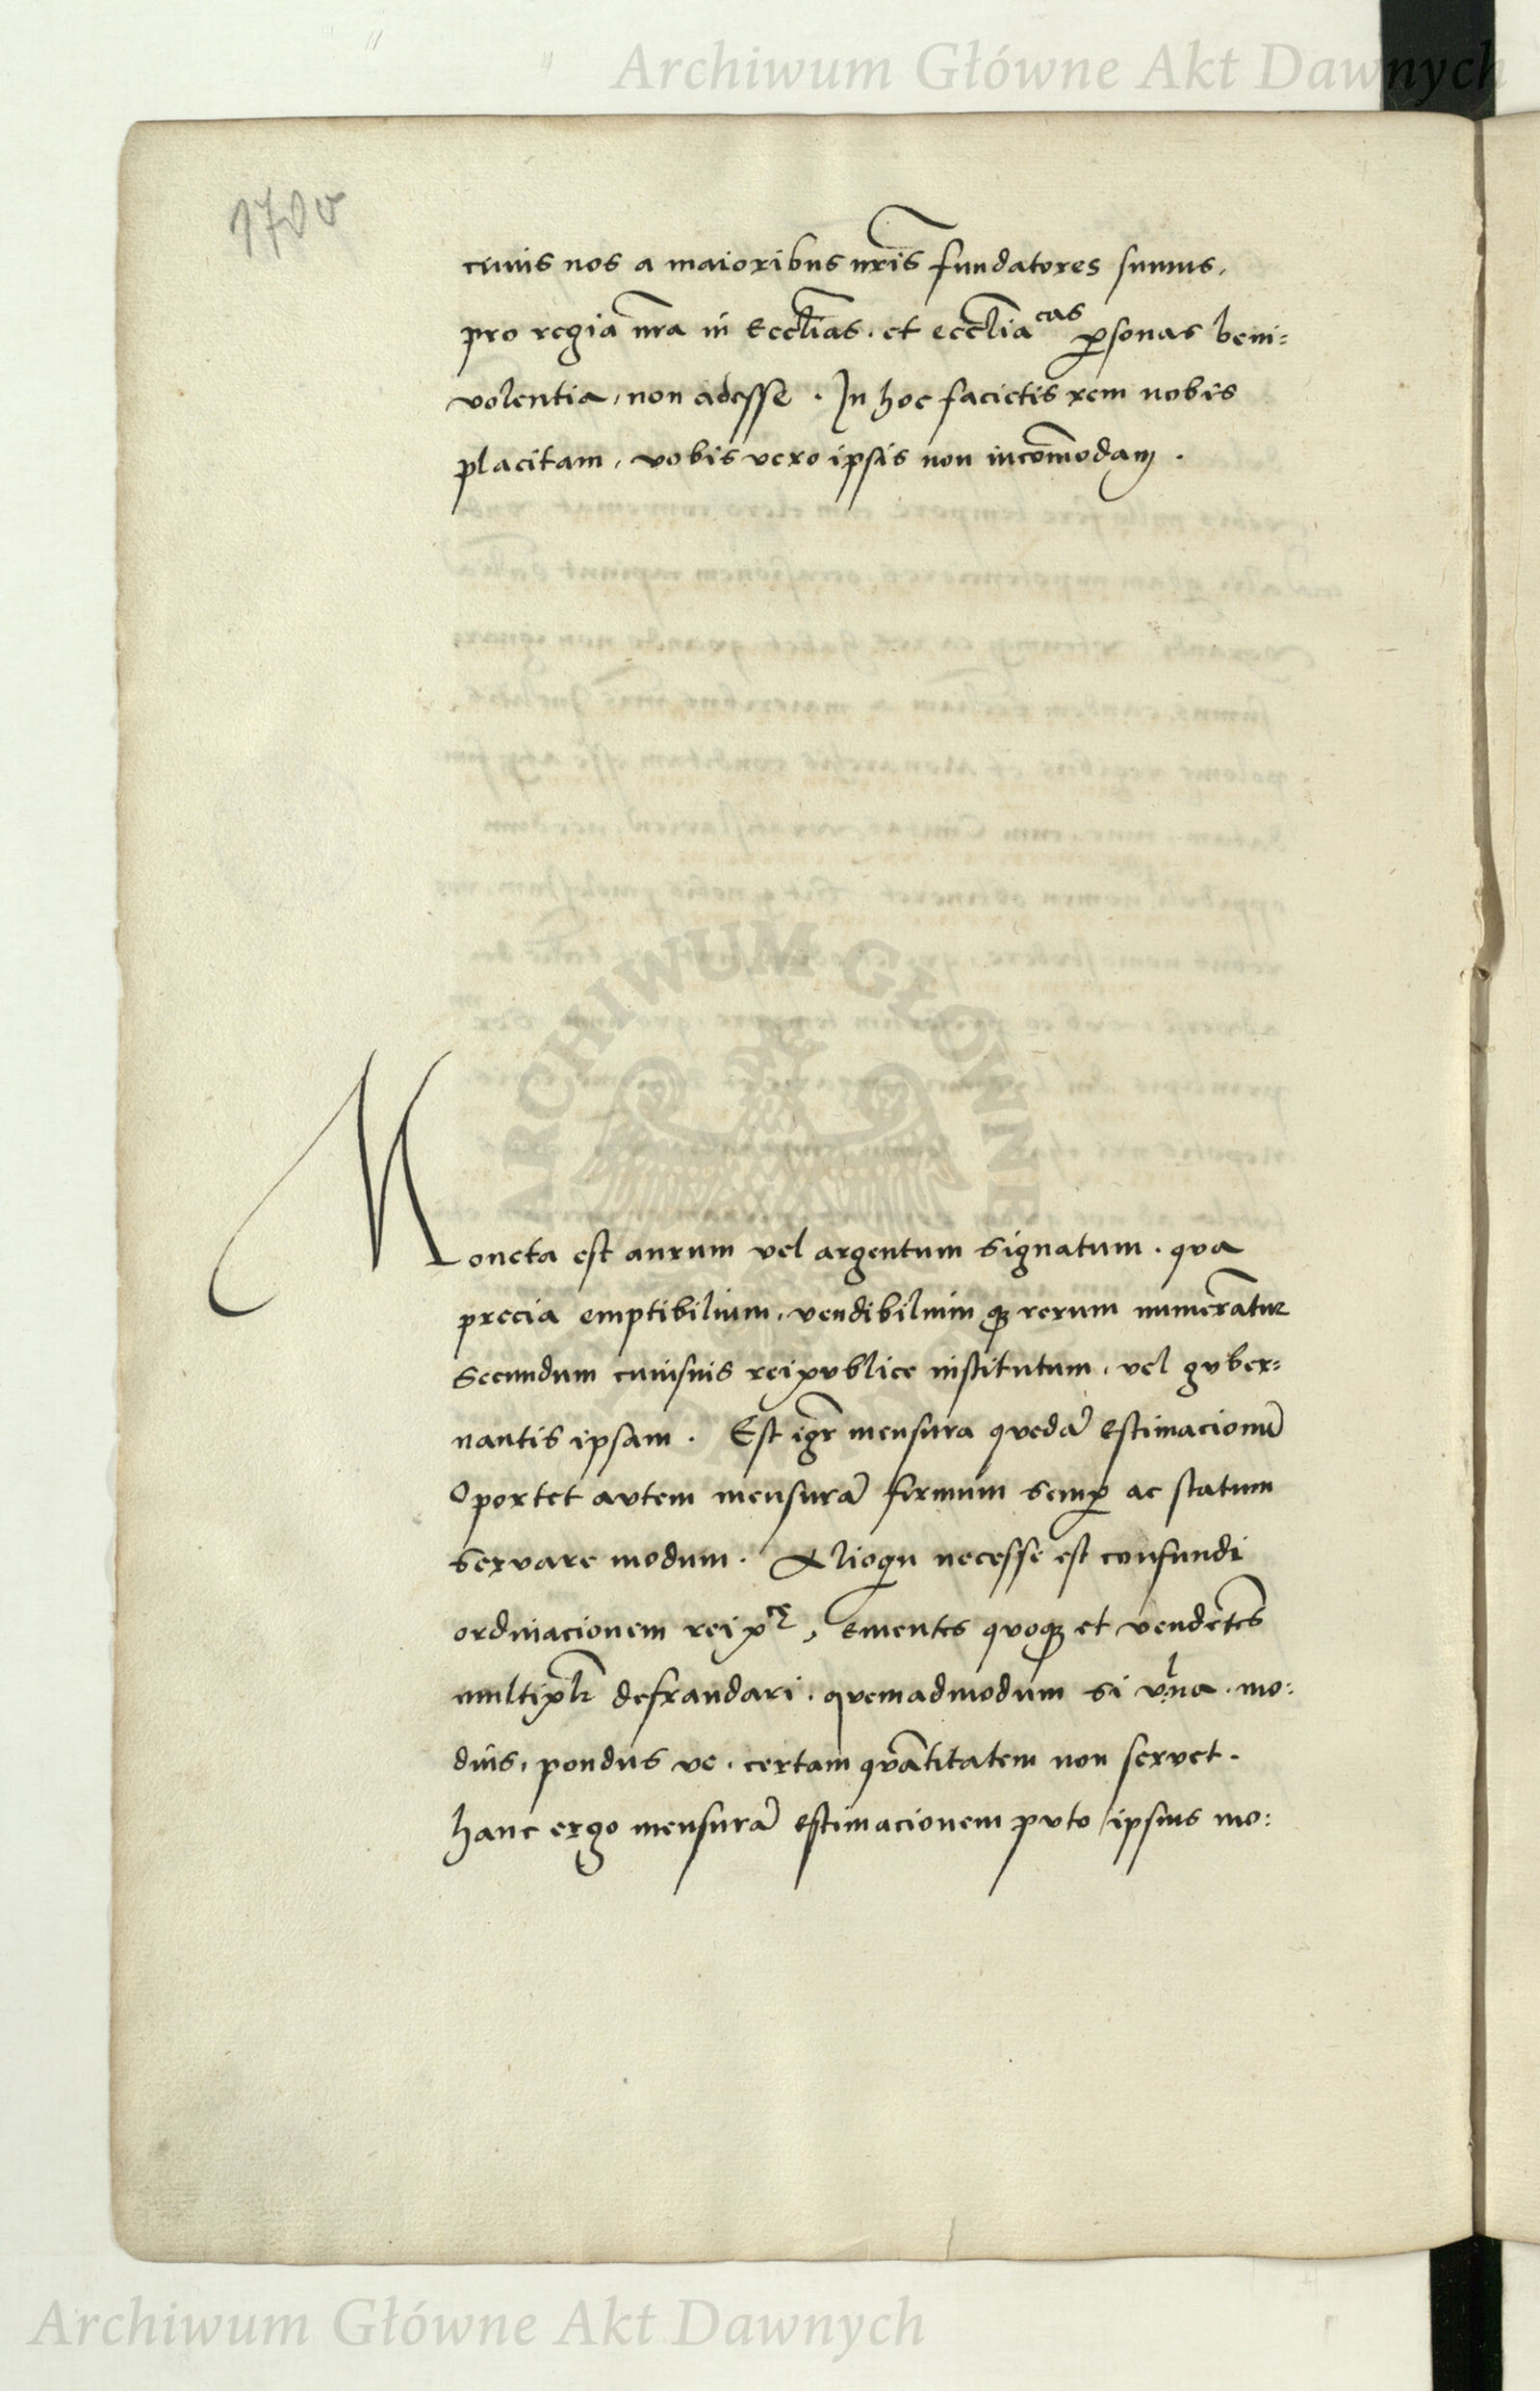 Archiwum Główne Akt Dawnych
170v
cuius nos a maioribus nr̃is fundatores sumus,
pro regia nr̃a in Eccl̃ias. et eccl̃iacas p̱sonas beni:
volentia, non adesse. In hoc facietis rem nobis
placitam, vobis vero ipsis non incom̃odam.
Moneta est aurum vel argentum signatum. qua
precia emptibilium, vendibilium qꝫ rerum numerãtur
Secundum cuiusuis reipublice institutum. vel guber:
nantis ipsam. Est igr̃ mensura quedã Estimacionũ
Oportet autem mensurã firmum semꝑ ac statum
servare modum. Alioqu necesse est confundi
ordinacionem reip^ce, Ementes quoqꝫ et vendẽtes
multipl̃r defraudari. quemadmodum si vlna. mo:
dius, pondus ve. certam quãtitatem non servet.
hanc ergo mensurã estimacionem puto ipsius mo:
ARCHIWUM GŁÓWNE
Archiwum Główne Akt Dawnych